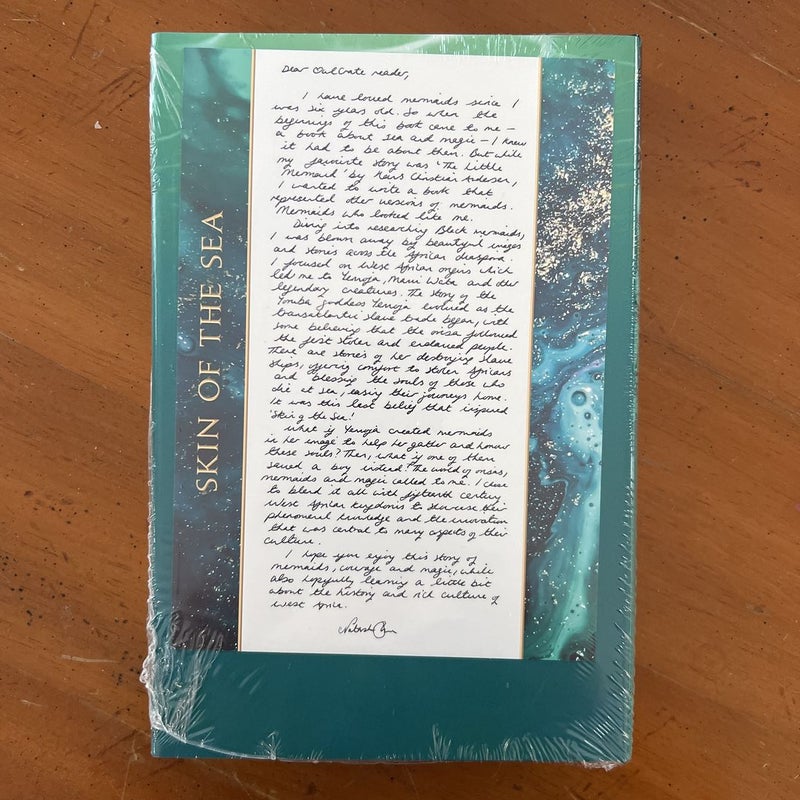 SKIN OF THE SEA
Dear OwlCrate reader,
I have loved mermaids since I
was six years old. So when the
beginnings of this book came to me –
a book about sea and magic – I knew
it had to be about them. But while
my favourite story was 'The Little
Mermaid' by Hans Christian Andersen,
I wanted to write a book that
represented other versions of mermaids.
Mermaids who looked like me.
Diving into researching Black mermaids,
I was blown away by beautiful images
and stories across the African diaspora.
I focused on West African origins which
led me to Yemoja, Mami Wata and other
legendary creatures. The story of the
Yoruba goddess Yemoja evolved as the
transatlantic slave trade began, with
some believing that the orisa followed
the first stolen and enslaved people.
There are stories of her destroying slave
ships, offering comfort to stolen Africans
and blessing the souls of those who
die at sea, easing their journeys home.
It was this last belief that inspired
'Skin of the Sea'.
What if Yemoja created mermaids
in her image to help her gather and honour
these souls? Then, what if one of them
saved a boy instead? The world of orisas,
mermaids and magic called to me. I chose
to blend it all with fifteenth century
West African kingdoms to showcase their
phenomenal knowledge and the innovation
that was central to many aspects of their
culture.
I hope you enjoy this story of
mermaids, courage and magic, while
also hopefully learning a little bit
about the history and rich culture of
West Africa.